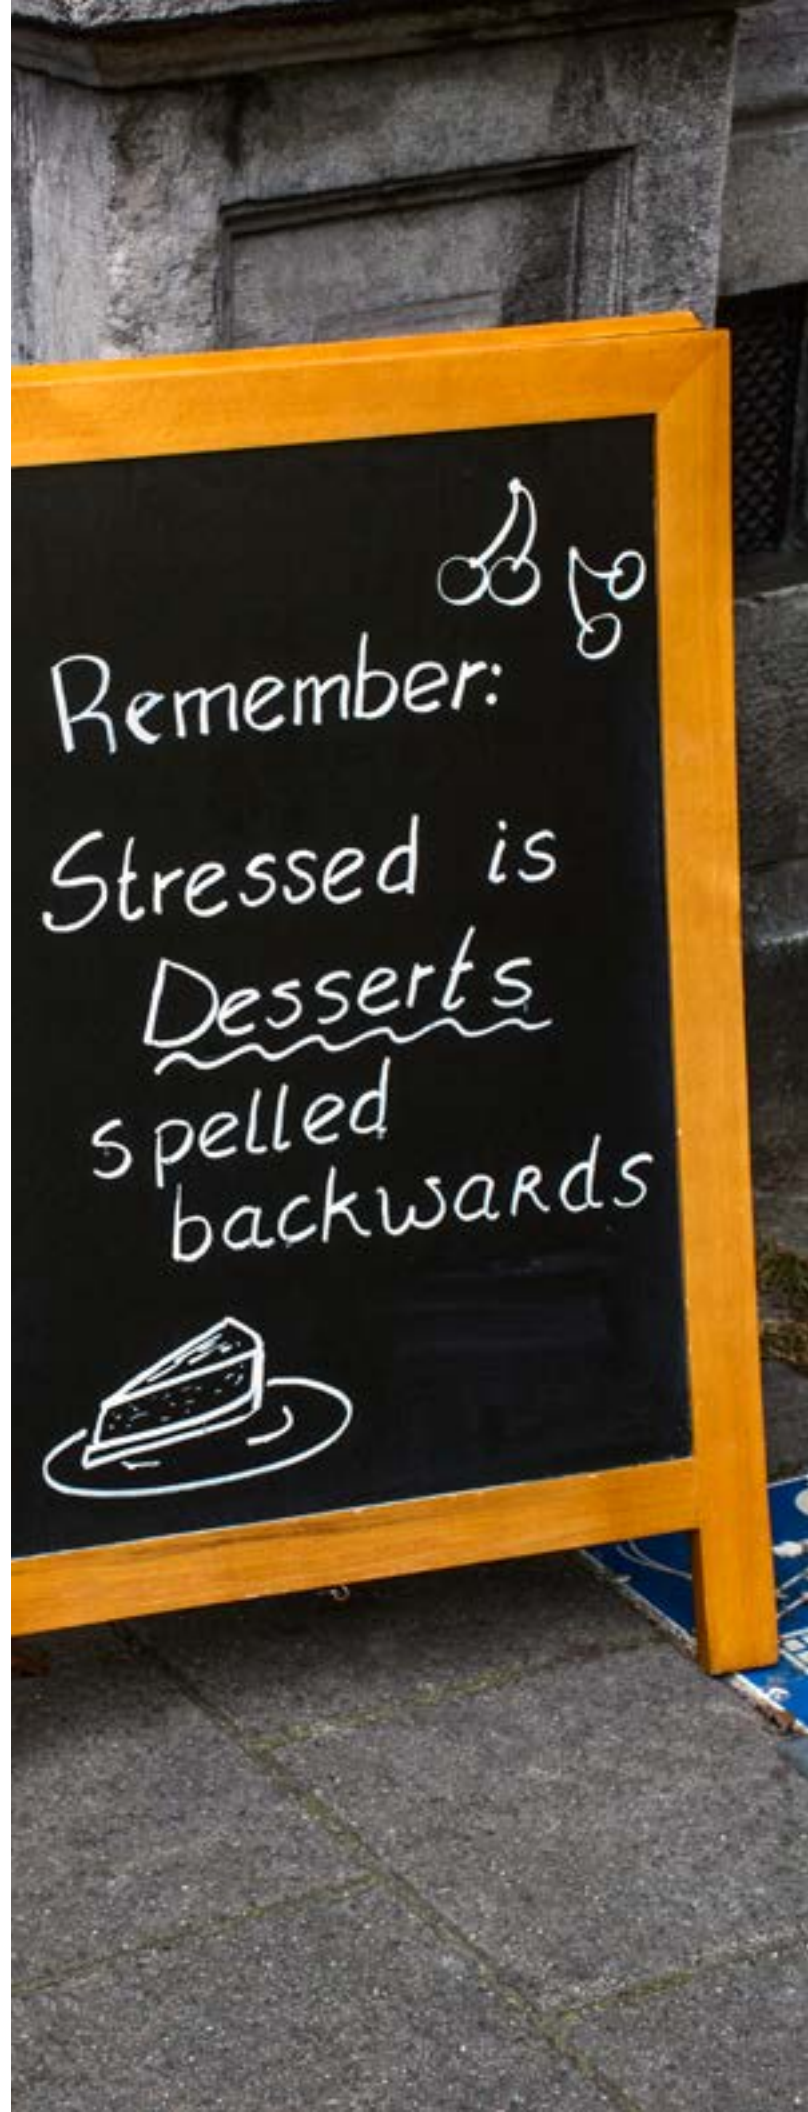 Remember:
Stressed is
Desserts
spelled
backwards